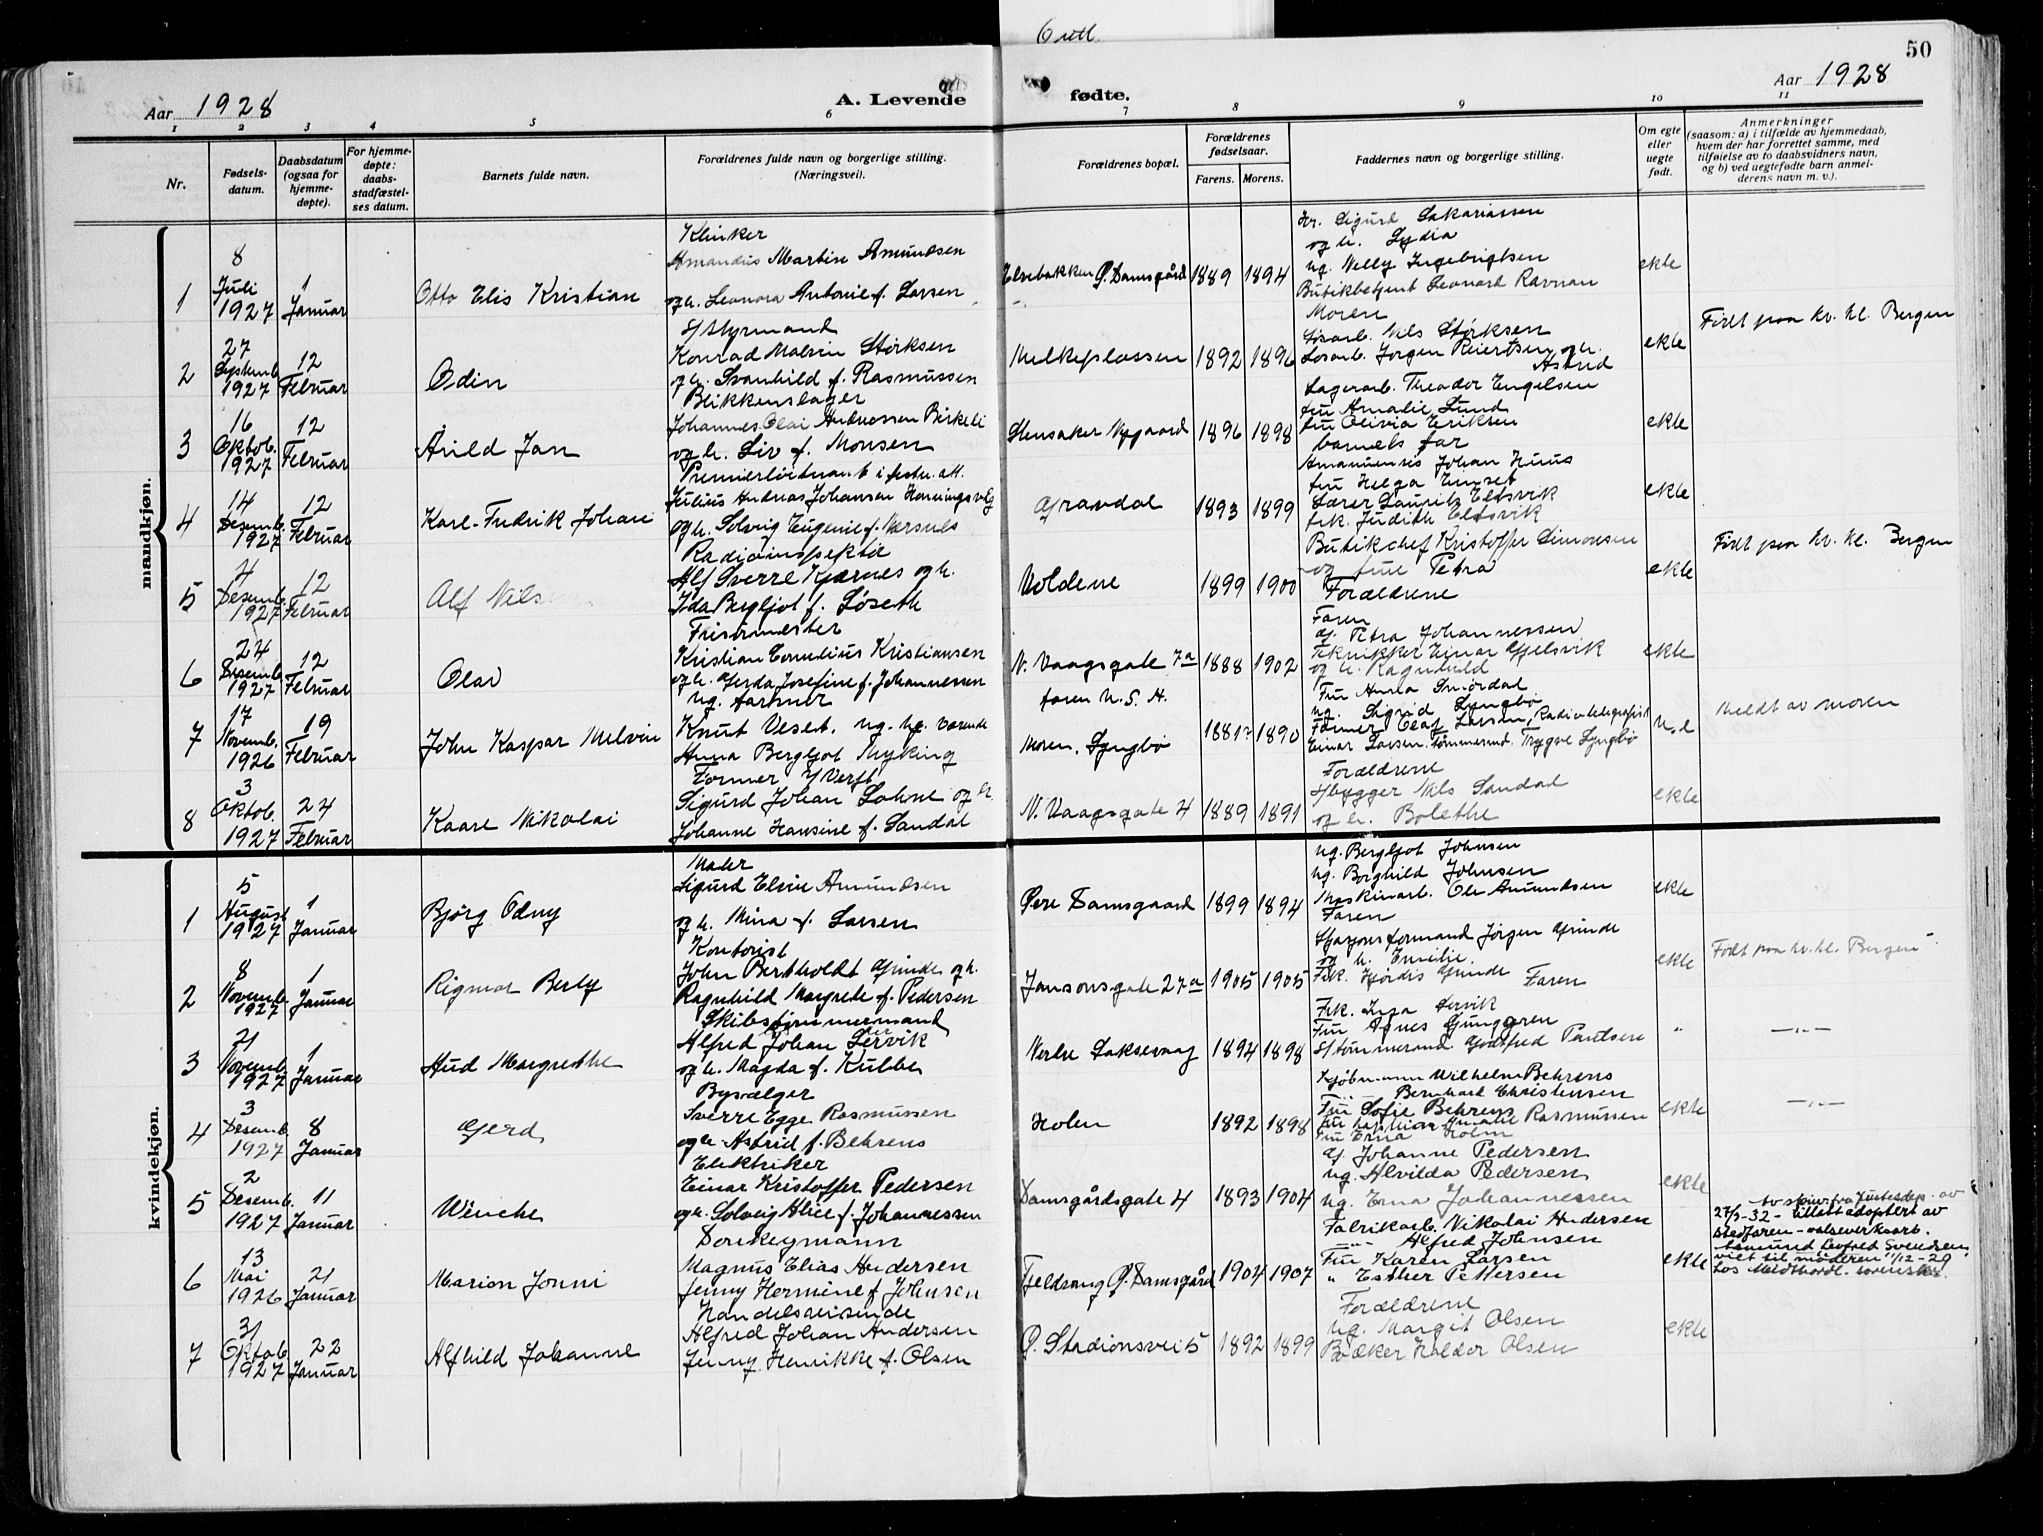 50
Aar 1928
A. Levende
fødte.
Aar 1928
1 2 3 4 5 6 7 8 9 10 11
Nr.
Fødsels-
datum.
Daabsdatum
(ogsaa for
hjemme-
døpte).
For hjemme-
døpte:
daabs-
stadfæstel-
ses datum.
Barnets fulde navn.
Forældrenes fulde navn og borgerlige stilling.
(Næringsvei).
Forældrenes bopæl.
Forældrenes
fødselsaar.
Farens. Morens.
Faddernes navn og borgerlige stilling.
Om egte
eller
uegte
født.
Anmerkninger
(saasom: a) i tilfælde av hjemmedaab,
hvem der har forrettet samme, med
tilføielse av to daabsvidners navn,
og b) ved uegtefødte barn anmel-
derens navn m. v.).
mandkjøn.
1
8
Juli
1927
1
Januar
Otto Elis Kristian
Klinker
Amandus Martin Amundsen
og h. Leonora Antonie f. Larsen
Elsebakken Ø. Damsgård
1889 1894
Hr. Sigurd Sakariassen
og h. Lydia
ug. Nelly Ingebrigtsen
Butikbetjent Leonard Ravnan
Moren
ekte
2
27
Septemb.
1927
12
Februar
Odin
Styrmand
Konrad Malvin Størksen
og h. Svanhild f. Rasmussen
Melkeplassen
1892 1896
Løsarb. Nils Størksen
Løsarb. Jørgen Reiertsen og h.
Astrid
Lagerarb. Theodor Engelsen
ekte
Født paa kv. kl. Bergen
3
16
Oktob.
1927
12
Februar
Arild Jan
Blikkenslager
Johannes Olai Andreassen Birkeli
og h. Liv f. Monsen
Stensaker Nygaard
1896 1898
fru Amalie Lund
fru Olivia Eriksen
barnets far
ekte
4
14
Desemb.
1927
12
Februar
Karl-Fredrik Johan
Premierløitnant i
Julius Andreas Johansen Honningsvåg
og h. Solveig Eugenie f. Nærsnes
Gravdal
1893 1899
Amanuensis Johan Huus
fru Helga
Lærer Laurits Eltsvik
frk. Judith Eltsvik
ekte
5
4
Desemb.
1927
12
Februar
Alf Nils
Radioinspektør
Alf Sverre Kjærnes og h.
Ida Bergljot f. Løseth
Voldene
1899 1900
Butikchef Kristoffer Simonsen
og frue Petra
Forældrene
ekte
Født paa kv. kl. Bergen
6
24
Desemb.
1927
12
Februar
Olav
Frisørmester
Kristian Cornelius Kristiansen
og h. Gerda Josefine f. Johannessen
N. Vaagsgate 7a
1888 1902
Faren
G. Petra Johannessen
Tekniker Einar Gjelsvik
og h. Ragnhild
ekte
7
17
Novemb.
1926
19
Februar
John Kaspar Melvin
ug. Gartner
Knut Veset.
Anna Bergljot Myking
faren U. S. A.
Moren, Lyngbø
1881? 1890
Fru Anna Smørdal
ug. Sigrid Lyngbø
Former Olaf Larsen, Radiotelegrafist
Einar Larsen. Tømmermd. Trygve Lyngbø
u. e
Meldt av moren
8
3
Oktob.
1927
24
Februar
Kaare Nikolai
Former v/Verft
Sigurd Johan Lohne og h.
Johanne Hansine f. Sandal
N. Vaagsgate 4
1889 1891
Forældrene
Gbygger Nils Sandal
og h. Bolethe
ekte
kvindekjøn.
1
5
August
1927
1
Januar
Bjørg Odny
Maler
Sigurd Elvin Amundsen
og h. Mina f. Larsen
Øvre Damsgaard
1899 1894
ug. Bergljot Johnsen
ug. Borghild Johnsen
Maskinarb. Ole Amundsen
Faren
ekte
2
8
Novemb.
1927
1
Januar
Rigmor Berly
Kontorist
John Bertholdt Grinde og h.
Ragnhild Margrete f. Pedersen
Jansonsgate 27a
1905 1905
Jørgen Grinde
og h. Emilie.
Frk. Hjørdis Grinde Faren
ekte
Født paa kv. kl. Bergen
3
21
Novemb.
1927
1
Januar
Aud Margrethe
Skibstømmermand
Alfred Johan Lervik
og h. Magda f. Kubbe
Nedre Laksevaag
1894 1898
Frk. Inga Lervik
Fru Agnes Ljunggren
S/tømmermd. Godtfred Paulsen
"
—"—
4
3
Desemb.
1927
8
Januar
Gerd
Bysælger
Sverre Egge Rasmussen
og h. Astrid f. Behrens
Holen
1892 1898
Kjøbmann Wilhelm Behrens
Bernhard Christensen
Fru Sofie Behrens
Rasmussen
Fru Erna Holm
ekte
—"—
5
2
Desemb.
1927
11
Januar
Wenche
Elektriker
Einar Kristoffer Pedersen
og h. Solveig Alice f. Johannessen
Damsgårdsgate 4
1893 1904
G. Johanne Pedersen
ug. Alvilda Pedersen
ug. Erna Johannessen
ekte
6
13
Mai
1926
21
Januar
Marion Jonni
Donkeymann
Magnus Elias Andersen
Jenny Hermine f. Johnsen
Fjeldvang Ø. Damsgård
1904 1907
Fabrikarb. Nikolai Andersen
—"— Alfred Johnsen
Fru Karen Larsen
" Esther Pettersen
ekte
av
27/5-32 - tillatt adoptert av
stedfaren - valseverksarb.
Svendsen,
viet til moderen 11/12-29
7
31
Oktob.
1927
22
Januar
Alfhild Johanne
Handelsreisende
Alfred Johan Andersen
Jenny Henrikke f. Olsen
Ø. Stadionsvei 5
1892 1899
Forældrene
ug. Margit Olsen
Baker Haldor Olsen
ekte